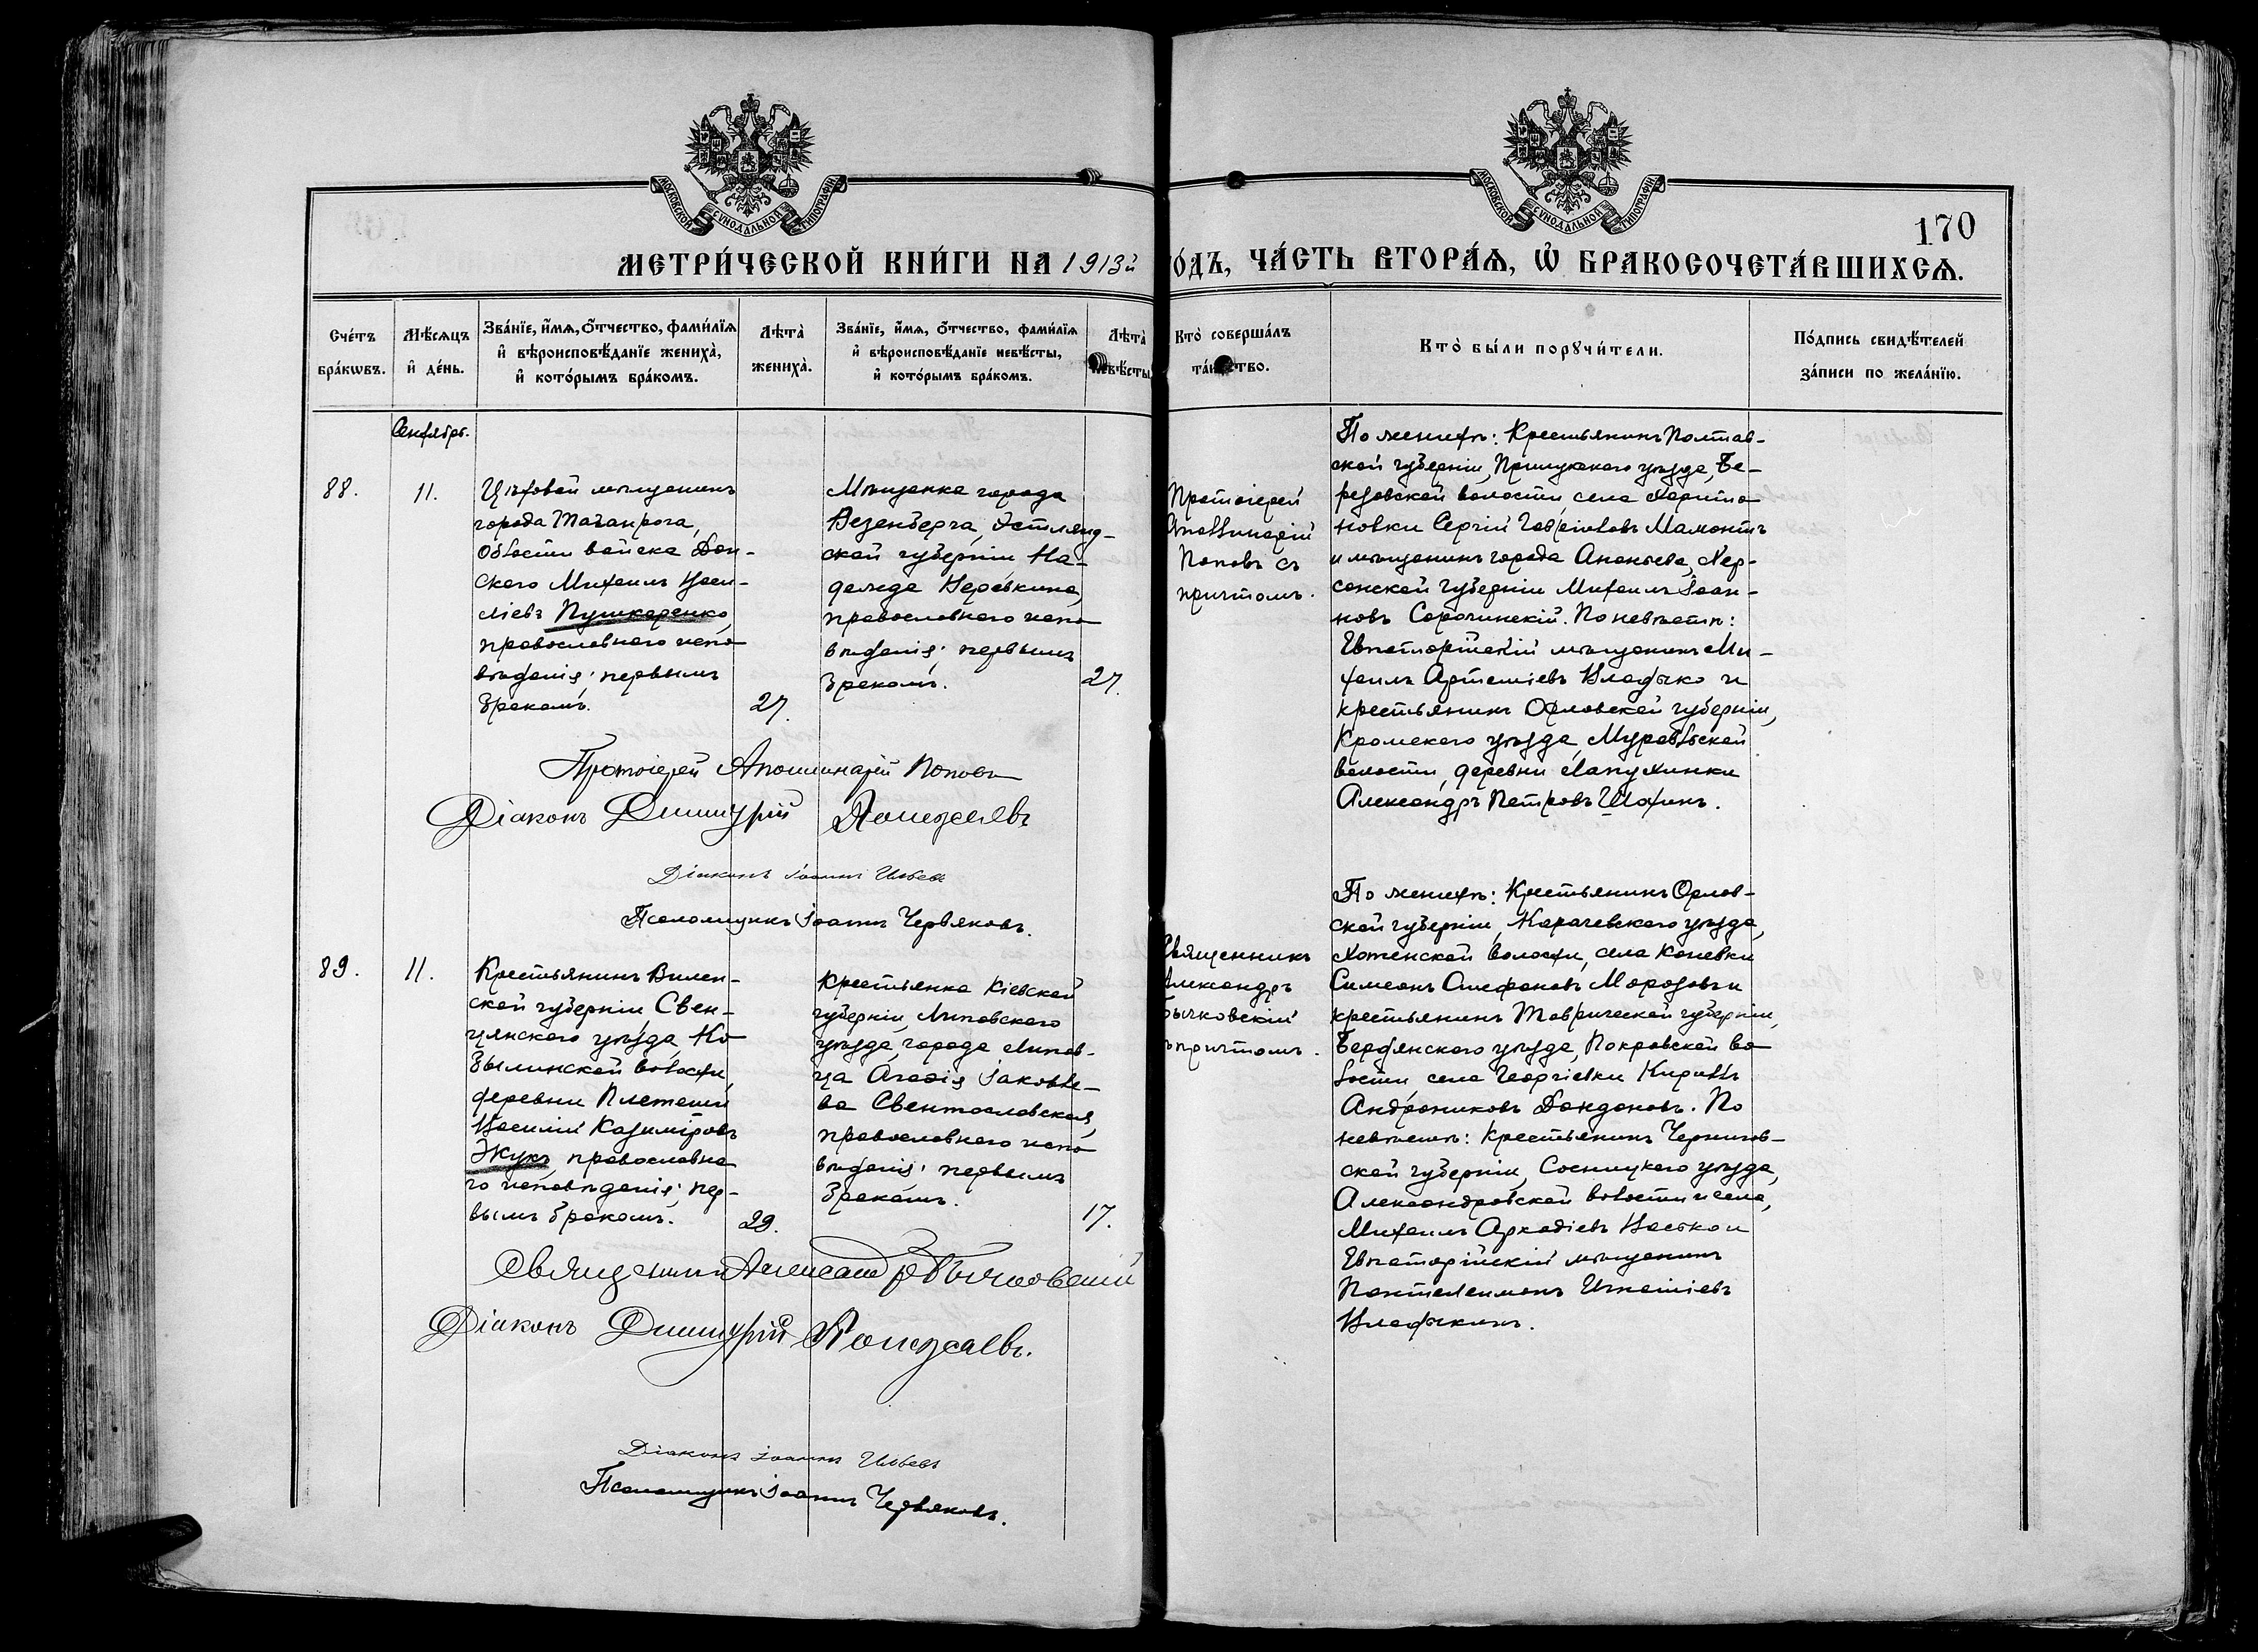 МОСКОВСКОЙ СУНОДАЛЬНОЙ ТИПОГРАФІИ
МОСКОВСКОЙ СУНОДАЛЬНОЙ ТИПОГРАФІИ
170
МЕТРИ́ЧЕСКОЙ КНИ́ГИ НА 1913й го́дъ, ЧА́СТЬ ВТОРА́Ѧ, Ѡ҆ БРАКОСОЧЕТА́ВШИХСѦ.
Сче́тъ бра́кѡвъ.
Мѣ́сѧцъ и҆ де́нь.
Зва́нїе, и҆́мѧ, ѻ҆́тчество, фами́лїѧ
и҆ вѣроисповѣ́данїе жениха̀,
и҆ кото́рымъ бра́комъ.
Лѣта̀ жениха̀.
Зва́нїе, и҆́мѧ, ѻ҆́тчество, фами́лїѧ
и҆ вѣроисповѣ́данїе невѣ́сты,
и҆ кото́рымъ бра́комъ.
Лѣта̀ невѣ́сты
Кто̀ соверша́лъ
та́инство.
Кто̀ бы́ли порꙋчи́тели.
По́дпись свидѣ́телей
за́писи по жела́нїю.
Сентябрь.
88.
11.
Цѣховой мѣщанинъ
города Таганрога,
Области войска Дон-
ского Михаилъ Васи-
ліевъ Пушкаренко,
православнаго испо-
вѣданія; первымъ
бракомъ.
27.
Мѣщанка города
Везенберга, Эстлянд-
ской губерніи На-
дежда Веревкина,
православнаго испо-
вѣданія; первымъ
бракомъ.
27.
Протоіерей
Аполлинарій
Поповъ съ
причтомъ.
По женихѣ: Крестьянинъ Полтав-
ской губерніи, Прилукскаго уѣзда, Бе-
резовской волости, села Харито-
новки Сергій Гавріиловъ Мамонтъ
и мѣщанинъ города Ананьева, Хер-
сонской губерніи Михаилъ Іоан-
новъ Сорочинскій. По невѣстѣ:
Евпаторійскій мѣщанинъ Ми-
хаилъ Артеміевъ Владыко и
крестьянинъ Орловской губерніи,
Кромскаго уѣзда, Муравльской
волости, деревни Лапухинки
Александръ Петровъ Шахинъ.
Протоіерей Аполлинарій Поповъ
Діаконъ Димитрій
Діаконъ Іоаннъ Ильевъ
Псаломщикъ Іоаннъ Червяковъ.
89.
11.
Крестьянинъ Вилен-
ской губерніи, Свен-
цянскаго уѣзда, Ко-
былинской волости,
деревни Плетеши
Василій Казиміровъ
Жукъ, православна-
го исповѣданія; пер-
вымъ бракомъ.
29.
Крестьянка Кіевской
губерніи, Липовскаго
уѣзда, города Липов-
ца Агафія Іаковле-
ва Свентославская,
православнаго испо-
вѣданія; первымъ
бракомъ.
17.
Священникъ
Александръ
Бычковскій
съ причтомъ.
По женихѣ: Крестьянинъ Орлов-
ской губерніи, Карачевскаго уѣзда,
Хотенской волости, села Коневки
Симеонъ Стефановъ Морозовъ и
крестьянинъ Таврической губерніи,
Бердянскаго уѣзда, Покровской во-
лости, села Георгіевки Кириллъ
Андрониковъ Дондоновъ. По
невѣстѣ: Крестьянинъ Чернигов-
ской губерніи, Сосницкаго уѣзда,
Александровской волости и села,
Михаилъ Аркадіевъ Васько и
Евпаторійскій мѣщанинъ
Пантелеимонъ Игнатіевъ
Владыкинъ.
Священникъ Александръ Бычковскій
Діаконъ Димитрій
Діаконъ Іоаннъ Ильевъ
Псаломщикъ Іоаннъ Червяковъ.